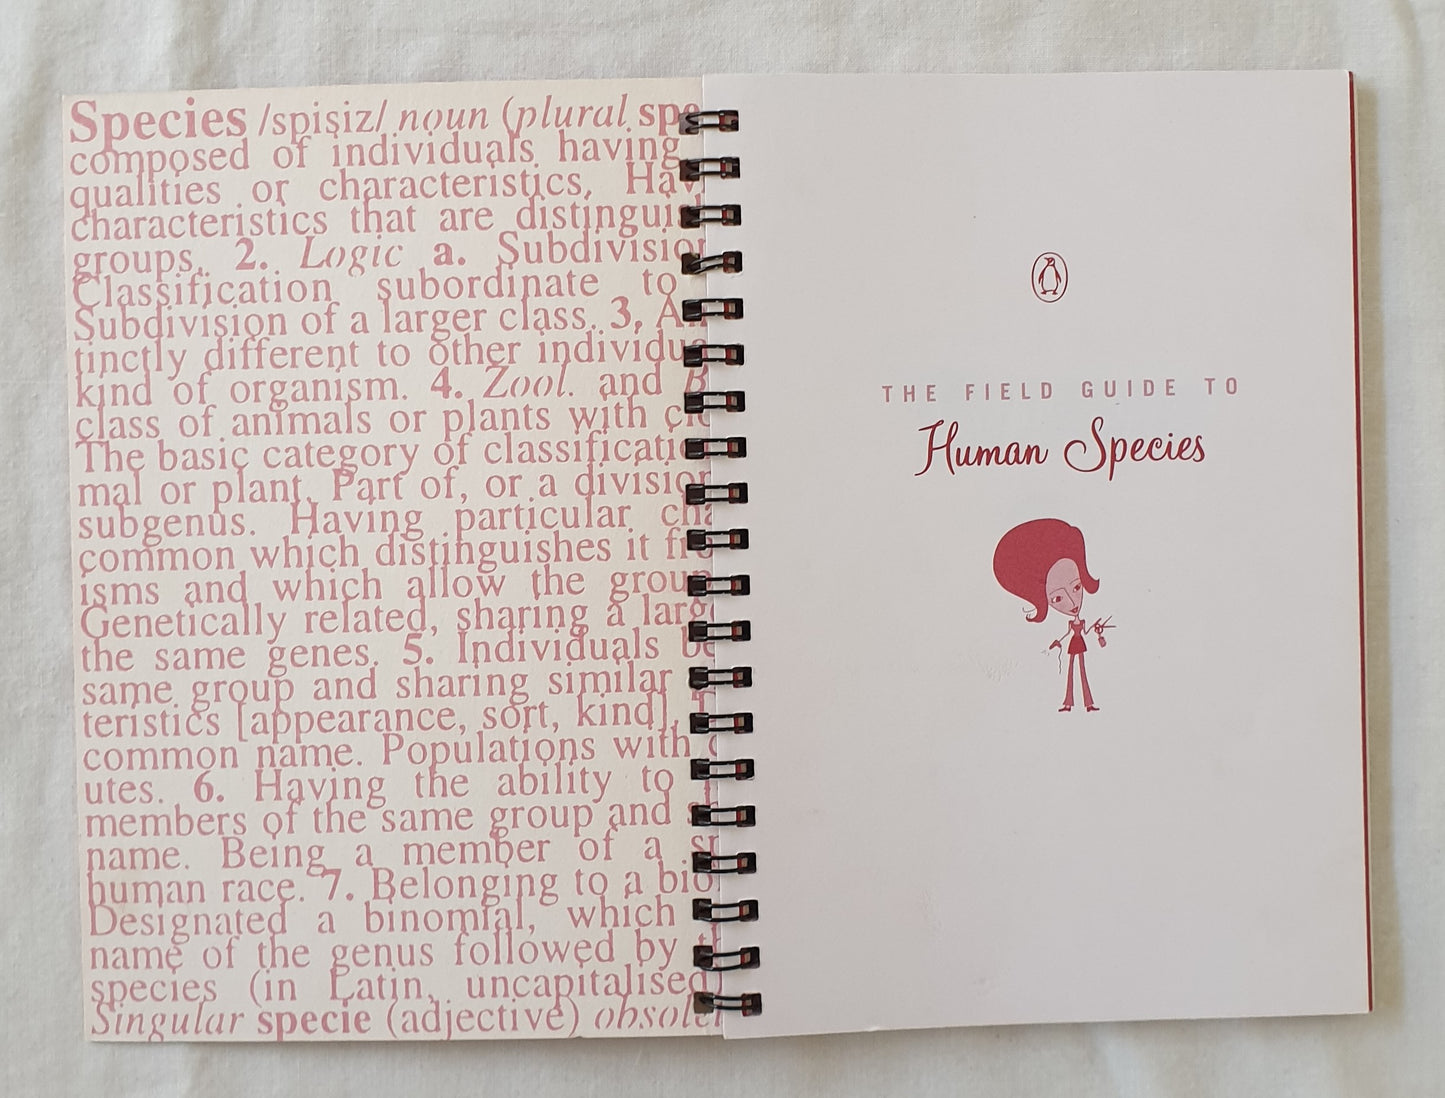 Species /spisiz/ noun (plural spe
composed of individuals having
qualities or characteristics, Hav
characteristics that are distinguis
groups. 2. Logic a. Subdivision
Classification subordinate to
Subdivision of a larger class. 3, An
tinctly different to other individu
kind of organism. 4. Zool. and B
class of animals or plants with
The basic category of classificatio
mal or plant. Part of, or a division
subgenus. Having particular cha
common which distinguishes it fro
isms and which allow the group
Genetically related, sharing a larg
the same genes. 5. Individuals be
same group and sharing similar
teristics [appearance, sort, kind],
common name. Populations with
utes. 6. Having the ability to
members of the same group and
name. Being a member of a
human race. 7. Belonging to a bio
Designated a binomial, which
name of the genus followed by
species (in Latin, uncapitalised
Singular specie (adjective) obsolet
THE FIELD GUIDE TO
Human Species